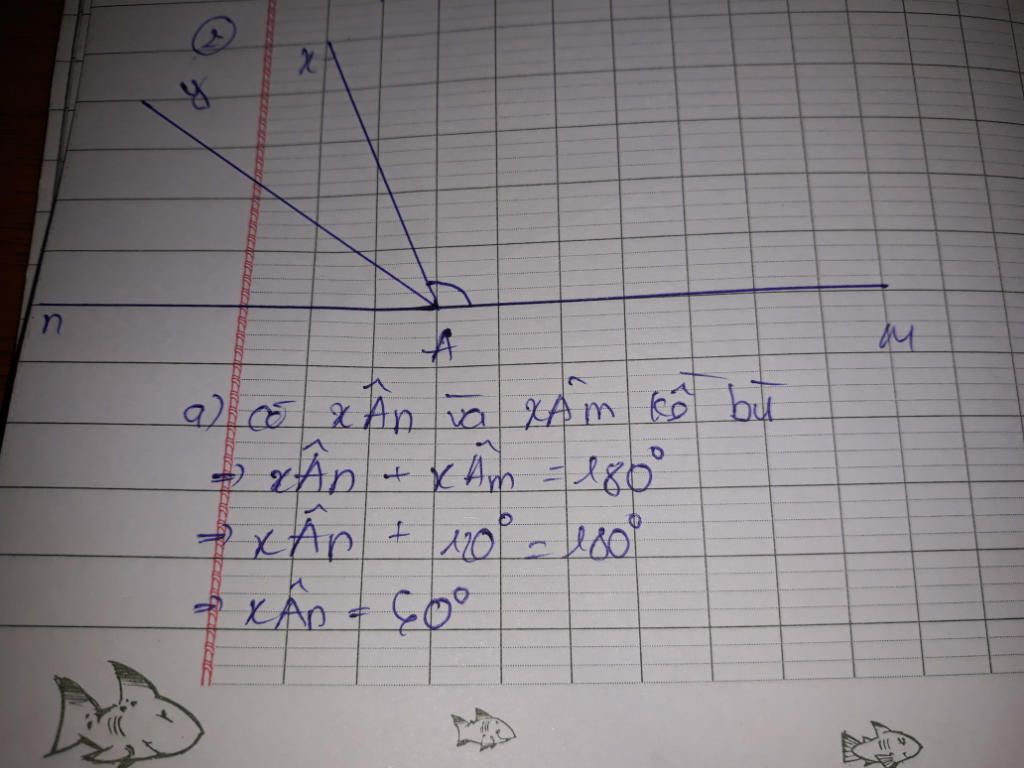 ②
x
y
n
A
M
a) có xÂn và xÂm kề bù
=> xÂn + xÂm = 180°
=> xÂn + 120° = 180°
=> xÂn = 60°